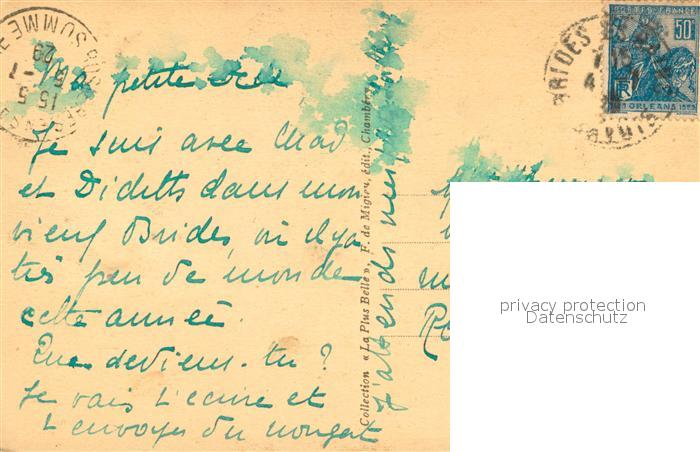 Ma petite
Je suis avec Mad
et Didette dans mon
vieux Brides, où il y a
très peu de monde
cette année.
Que deviens-tu ?
Je vais t'écrire et
t'envoyer du nougat
J'attends
Collection « La Plus Belle », F. de Migieu, édit., Chambéry
POSTES FRANCE
50c
RF
ORLEANS
BRIDES
SUMME
15 5
5 - 7
29
privacy protection
Datenschutz